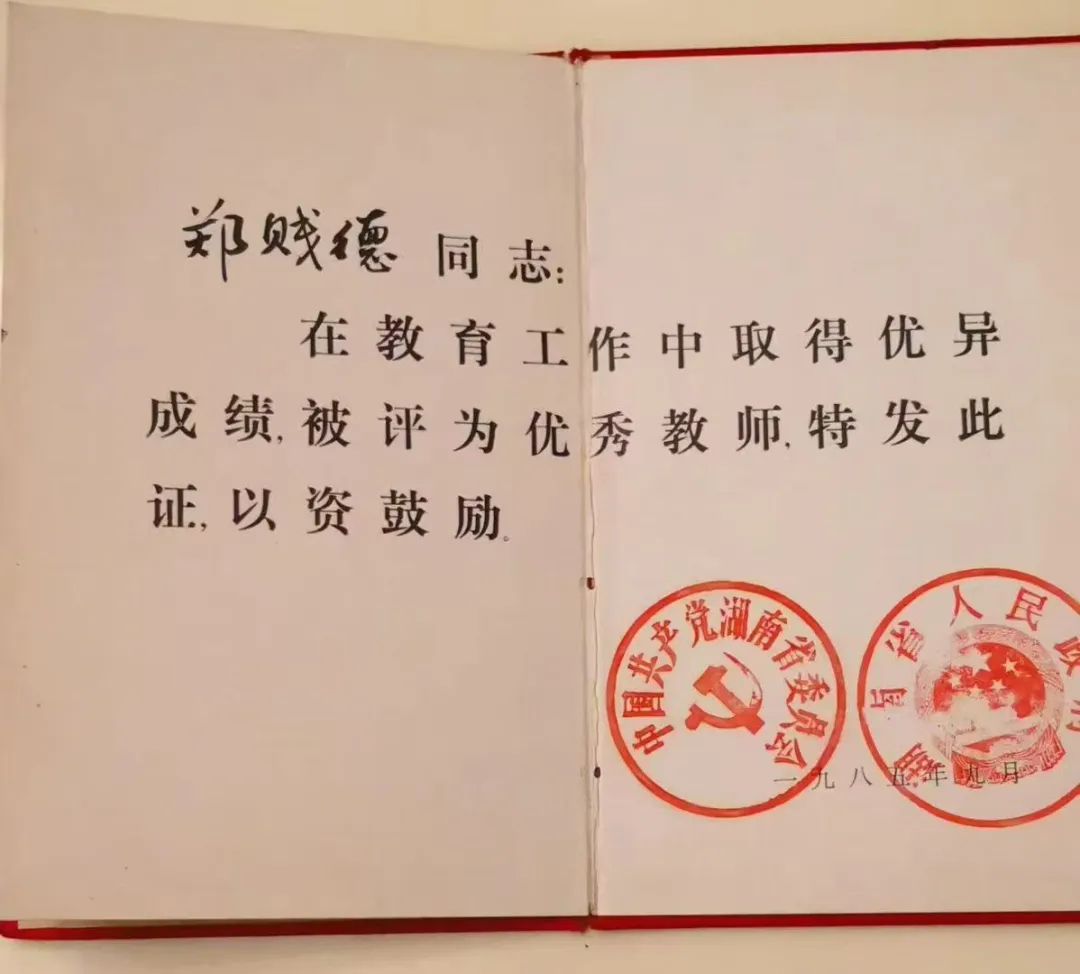 郑贱德同志：
在教育工作中取得优异
成绩,被评为优秀教师,特发此
证,以资鼓励。
中国共产党湖南省委员会
湖南省人民政府
一九八五年九月